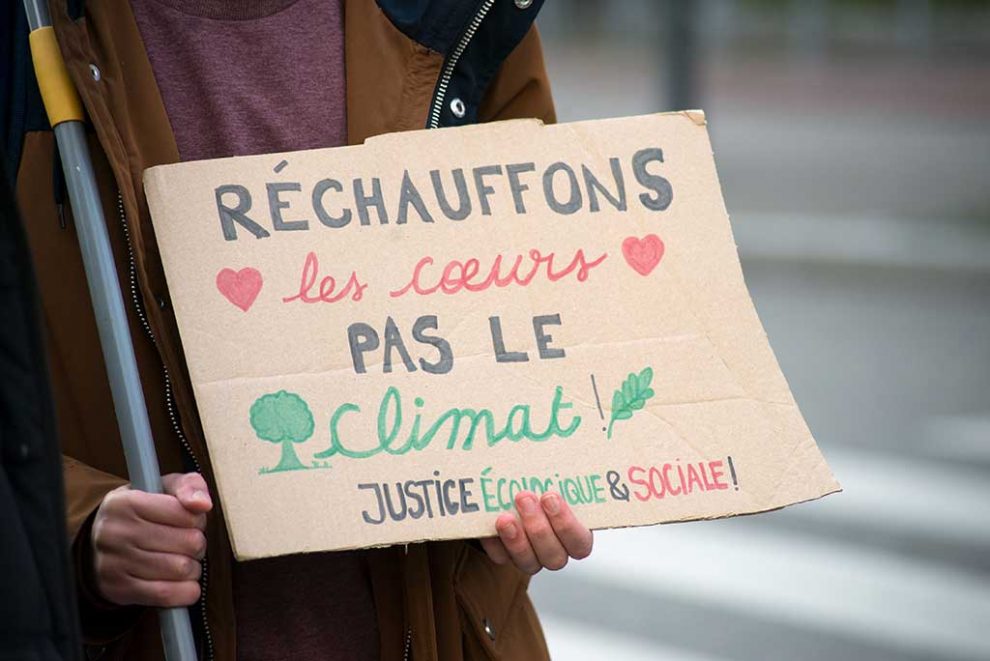 RÉCHAUFFONS
les cœurs
PAS LE
Climat !
JUSTICE ÉCOLOGIQUE & SOCIALE !